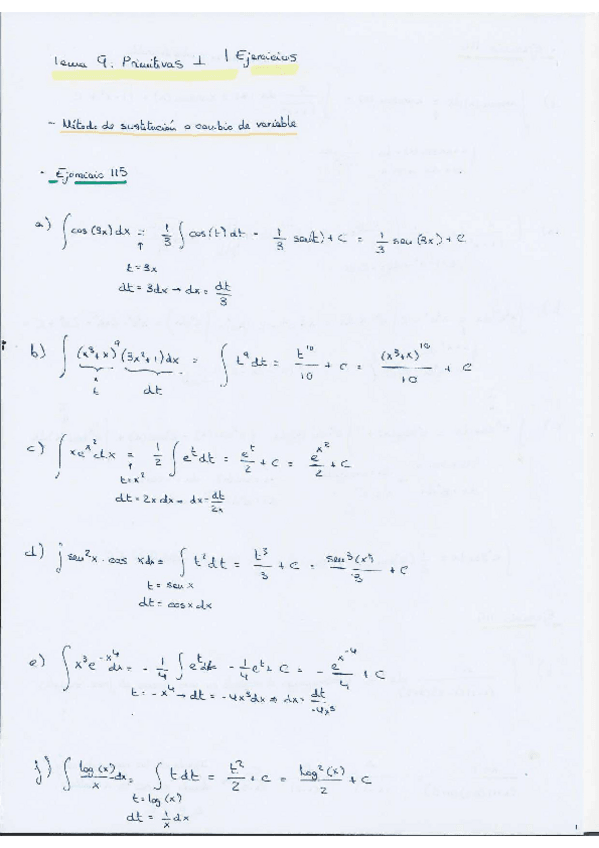 Tema 9. Primitivas I | Ejercicios
- Método de sustitución o cambio de variable
- Ejercicio 115
a) ∫cos(3x)dx = 1/3 ∫cos(t)dt = 1/3 sen(t) + C = 1/3 sen(3x) + C
↑
t = 3x
dt = 3dx → dx = dt/3
b) ∫(x³+x)⁹(3x²+1)dx = ∫t⁹dt = t¹⁰/10 + C = (x³+x)¹⁰/10 + C
t dt
c) ∫xe^x² dx = 1/2 ∫e^t dt = e^t/2 + C = e^x²/2 + C
↑
t = x²
dt = 2xdx → dx = dt/2x
d) ∫sen²x · cos xdx = ∫t²dt = t³/3 + C = sen³(x)/3 + C
t = sen x
dt = cosxdx
e) ∫x³e^-x⁴ dx = - 1/4 ∫e^t dt = - 1/4 e^t + C = - e^x^-4/4 + C
t = -x⁴ → dt = -4x³dx → dx = dt/-4x³
f) ∫log(x)/x dx = ∫tdt = t²/2 + C = log²(x)/2 + C
t = log(x)
dt = 1/x dx
1